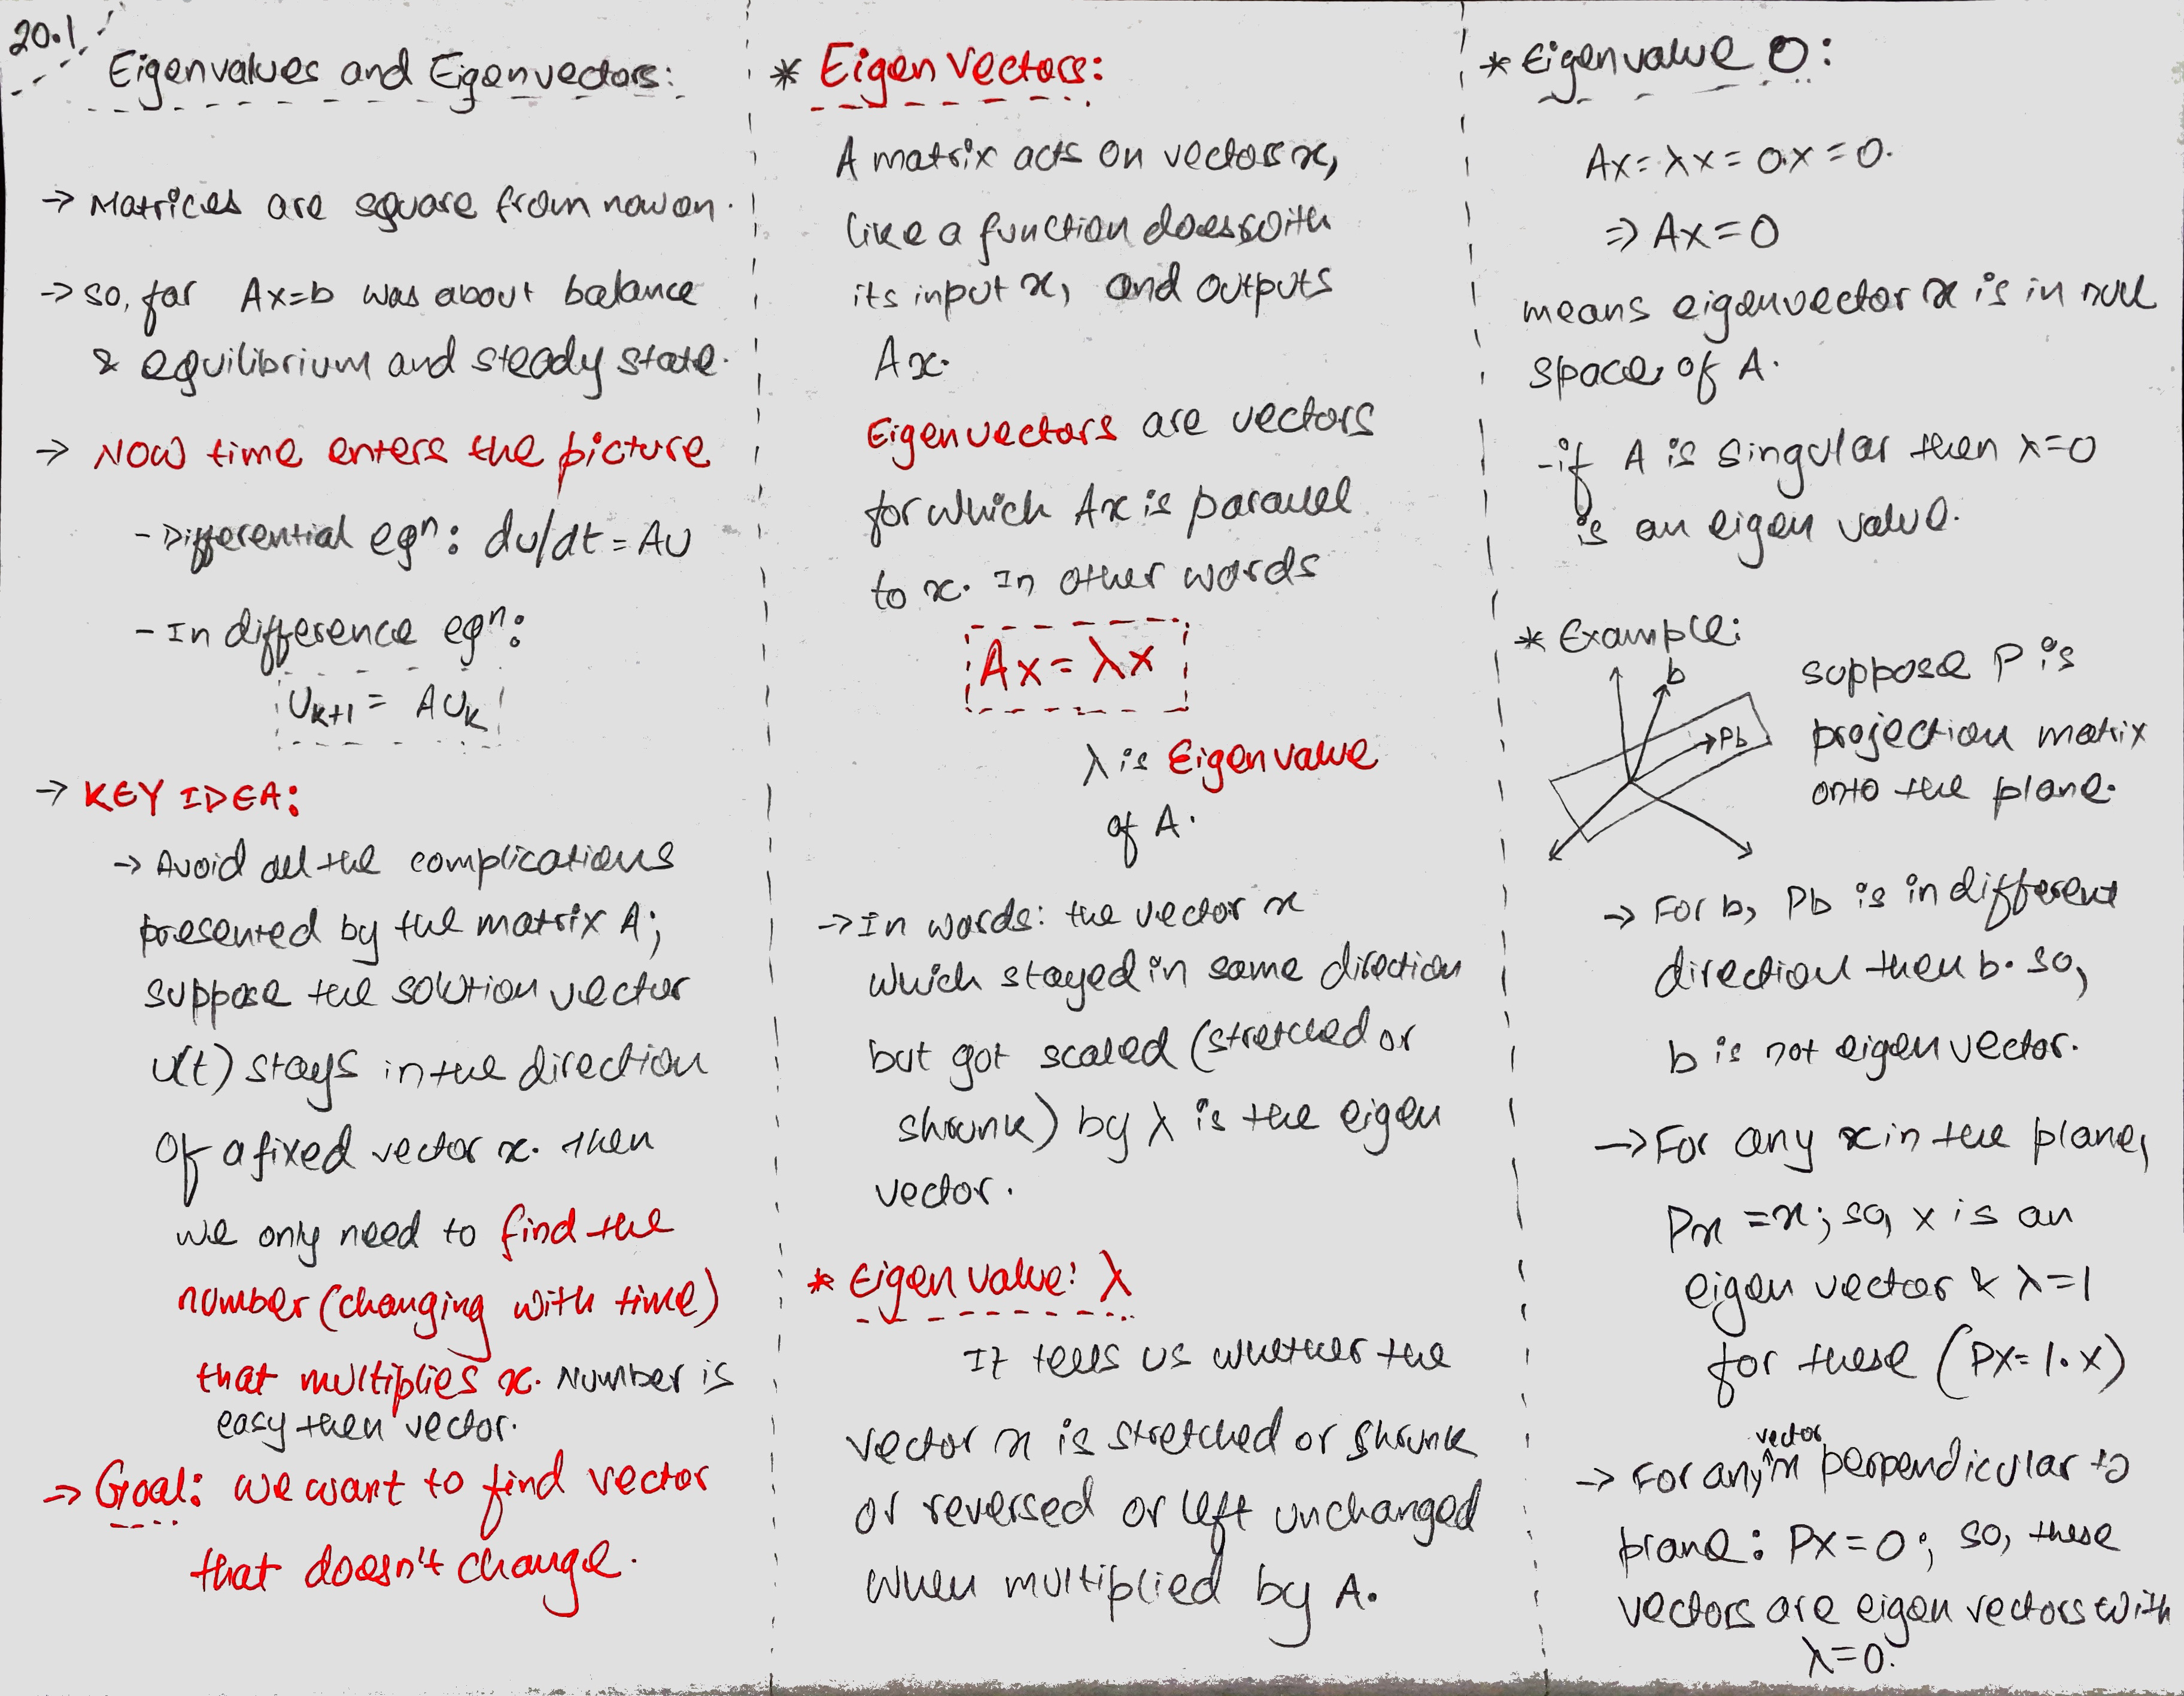 20.1
Eigenvalues and Eigenvectors:
→ Matrices are square from now on.
→ so, far Ax=b was about balance
& equilibrium and steady state.
→ Now time enters the picture
- Differential eqⁿ: du/dt = Au
- In difference eqⁿ:
Uₖ₊₁ = AUₖ
→ KEY IDEA:
→ Avoid all the complications
presented by the matrix A;
suppose the solution vector
u(t) stays in the direction
of a fixed vector x. then
we only need to find the
number (changing with time)
that multiplies x. Number is
easy then vector.
→ Goal: we want to find vector
that doesn't change.
* Eigen Vectors:
A matrix acts on vectors x,
like a function does with
its input x, and outputs
Ax.
Eigenvectors are vectors
for which Ax is parallel
to x. In other words
Ax = λx
λ is Eigenvalue
of A.
→ In words: the vector x
which stayed in same direction
but got scaled (stretched or
shrunk) by λ is the eigen
vector.
* Eigen value: λ
It tells us whether the
vector x is stretched or shrunk
or reversed or left unchanged
when multiplied by A.
* Eigenvalue 0:
Ax = λx = 0x = 0.
⇒ Ax = 0
means eigenvector x is in null
space of A.
- if A is singular then λ=0
is an eigen value.
* Example:
b
Pb
suppose P is
projection matrix
onto the plane.
→ For b, Pb is in different
direction then b. so,
b is not eigen vector.
→ For any x in the plane,
Px = x; so, x is an
eigen vector & λ=1
for these (Px = 1.x)
→ For any vector x perpendicular to
plane: Px = 0; so, these
vectors are eigen vectors with
λ=0.